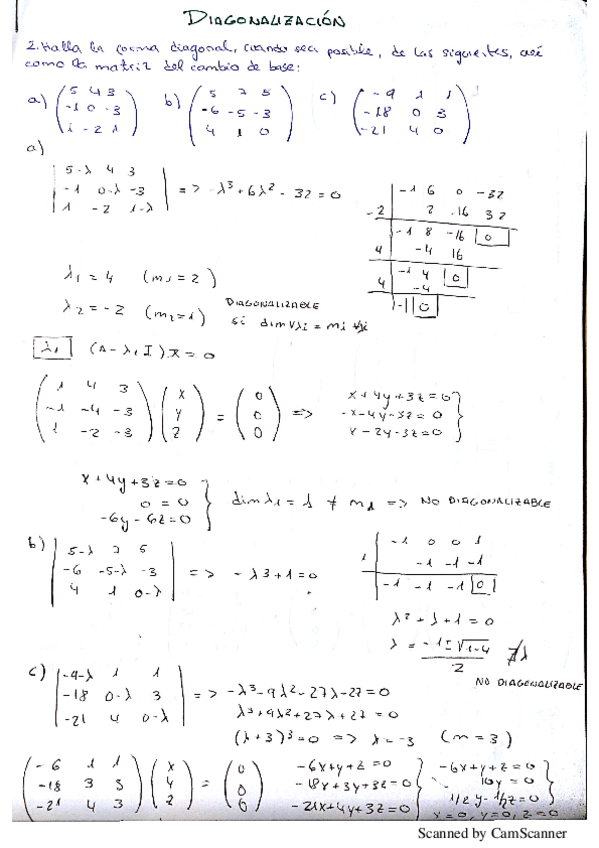 DIAGONALIZACIÓN
2. Halla la forma diagonal, cuando sea posible, de las siguientes, así
como la matriz del cambio de base:
a) (5 4 3 / -1 0 -3 / 1 -2 1) b) (5 7 5 / -6 -5 -3 / 4 1 0) c) (-9 1 1 / -18 0 3 / -21 4 0)
a)
|5-λ 4 3 / -1 0-λ -3 / 1 -2 1-λ| => -λ³+6λ²-32=0
-1 6 0 -32
-2 2 -16 32
-1 8 -16 0
4 -4 16
-1 4 0
4 -4
-1 0
λ₁ = 4 (m₁ = 2)
λ₂ = -2 (m₂ = 1) DIAGONALIZABLE
si dim Vλi = mi ∀i
λ₁ (A-λ₁I)x̄ = 0
(1 4 3 / -1 -4 -3 / 1 -2 -3) (x / y / z) = (0 / 0 / 0) =>
x+4y+3z=0
-x-4y-3z=0
x-2y-3z=0
x+4y+3z=0
0=0
-6y-6z=0
dim λ₁ = 1 ≠ m₁ => NO DIAGONALIZABLE
b) |5-λ 7 5 / -6 -5-λ -3 / 4 1 0-λ| => -λ³+1=0
-1 0 0 1
1 -1 -1 -1
-1 -1 -1 0
λ²+λ+1=0
λ = (-1±√1-4)/2 ∄λ
NO DIAGONALIZABLE
c) |-9-λ 1 1 / -18 0-λ 3 / -21 4 0-λ| => -λ³-9λ²-27λ-27=0
λ³+9λ²+27λ+27=0
(λ+3)³=0 => λ=-3 (m=3)
(-6 1 1 / -18 3 3 / -21 4 3) (x / y / z) = (0 / 0 / 0)
-6x+y+z=0
-18x+3y+3z=0
-21x+4y+3z=0
-6x+y+z=0
1/2y-1/2z=0
y=0, y=0, z=0
Scanned by CamScanner